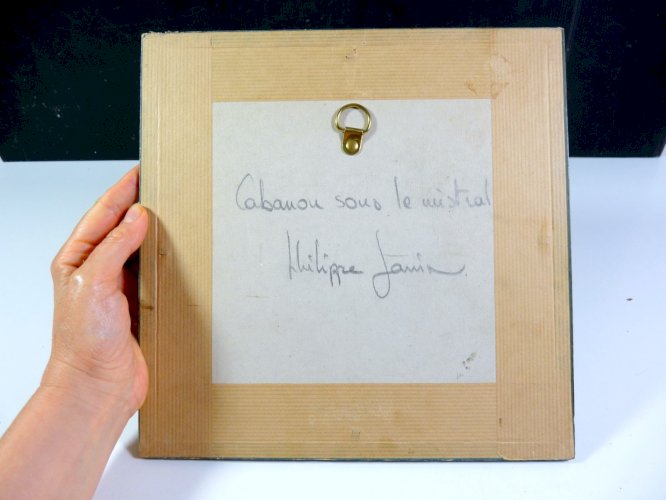 Cabanou sous le mistral
Philippe Janin